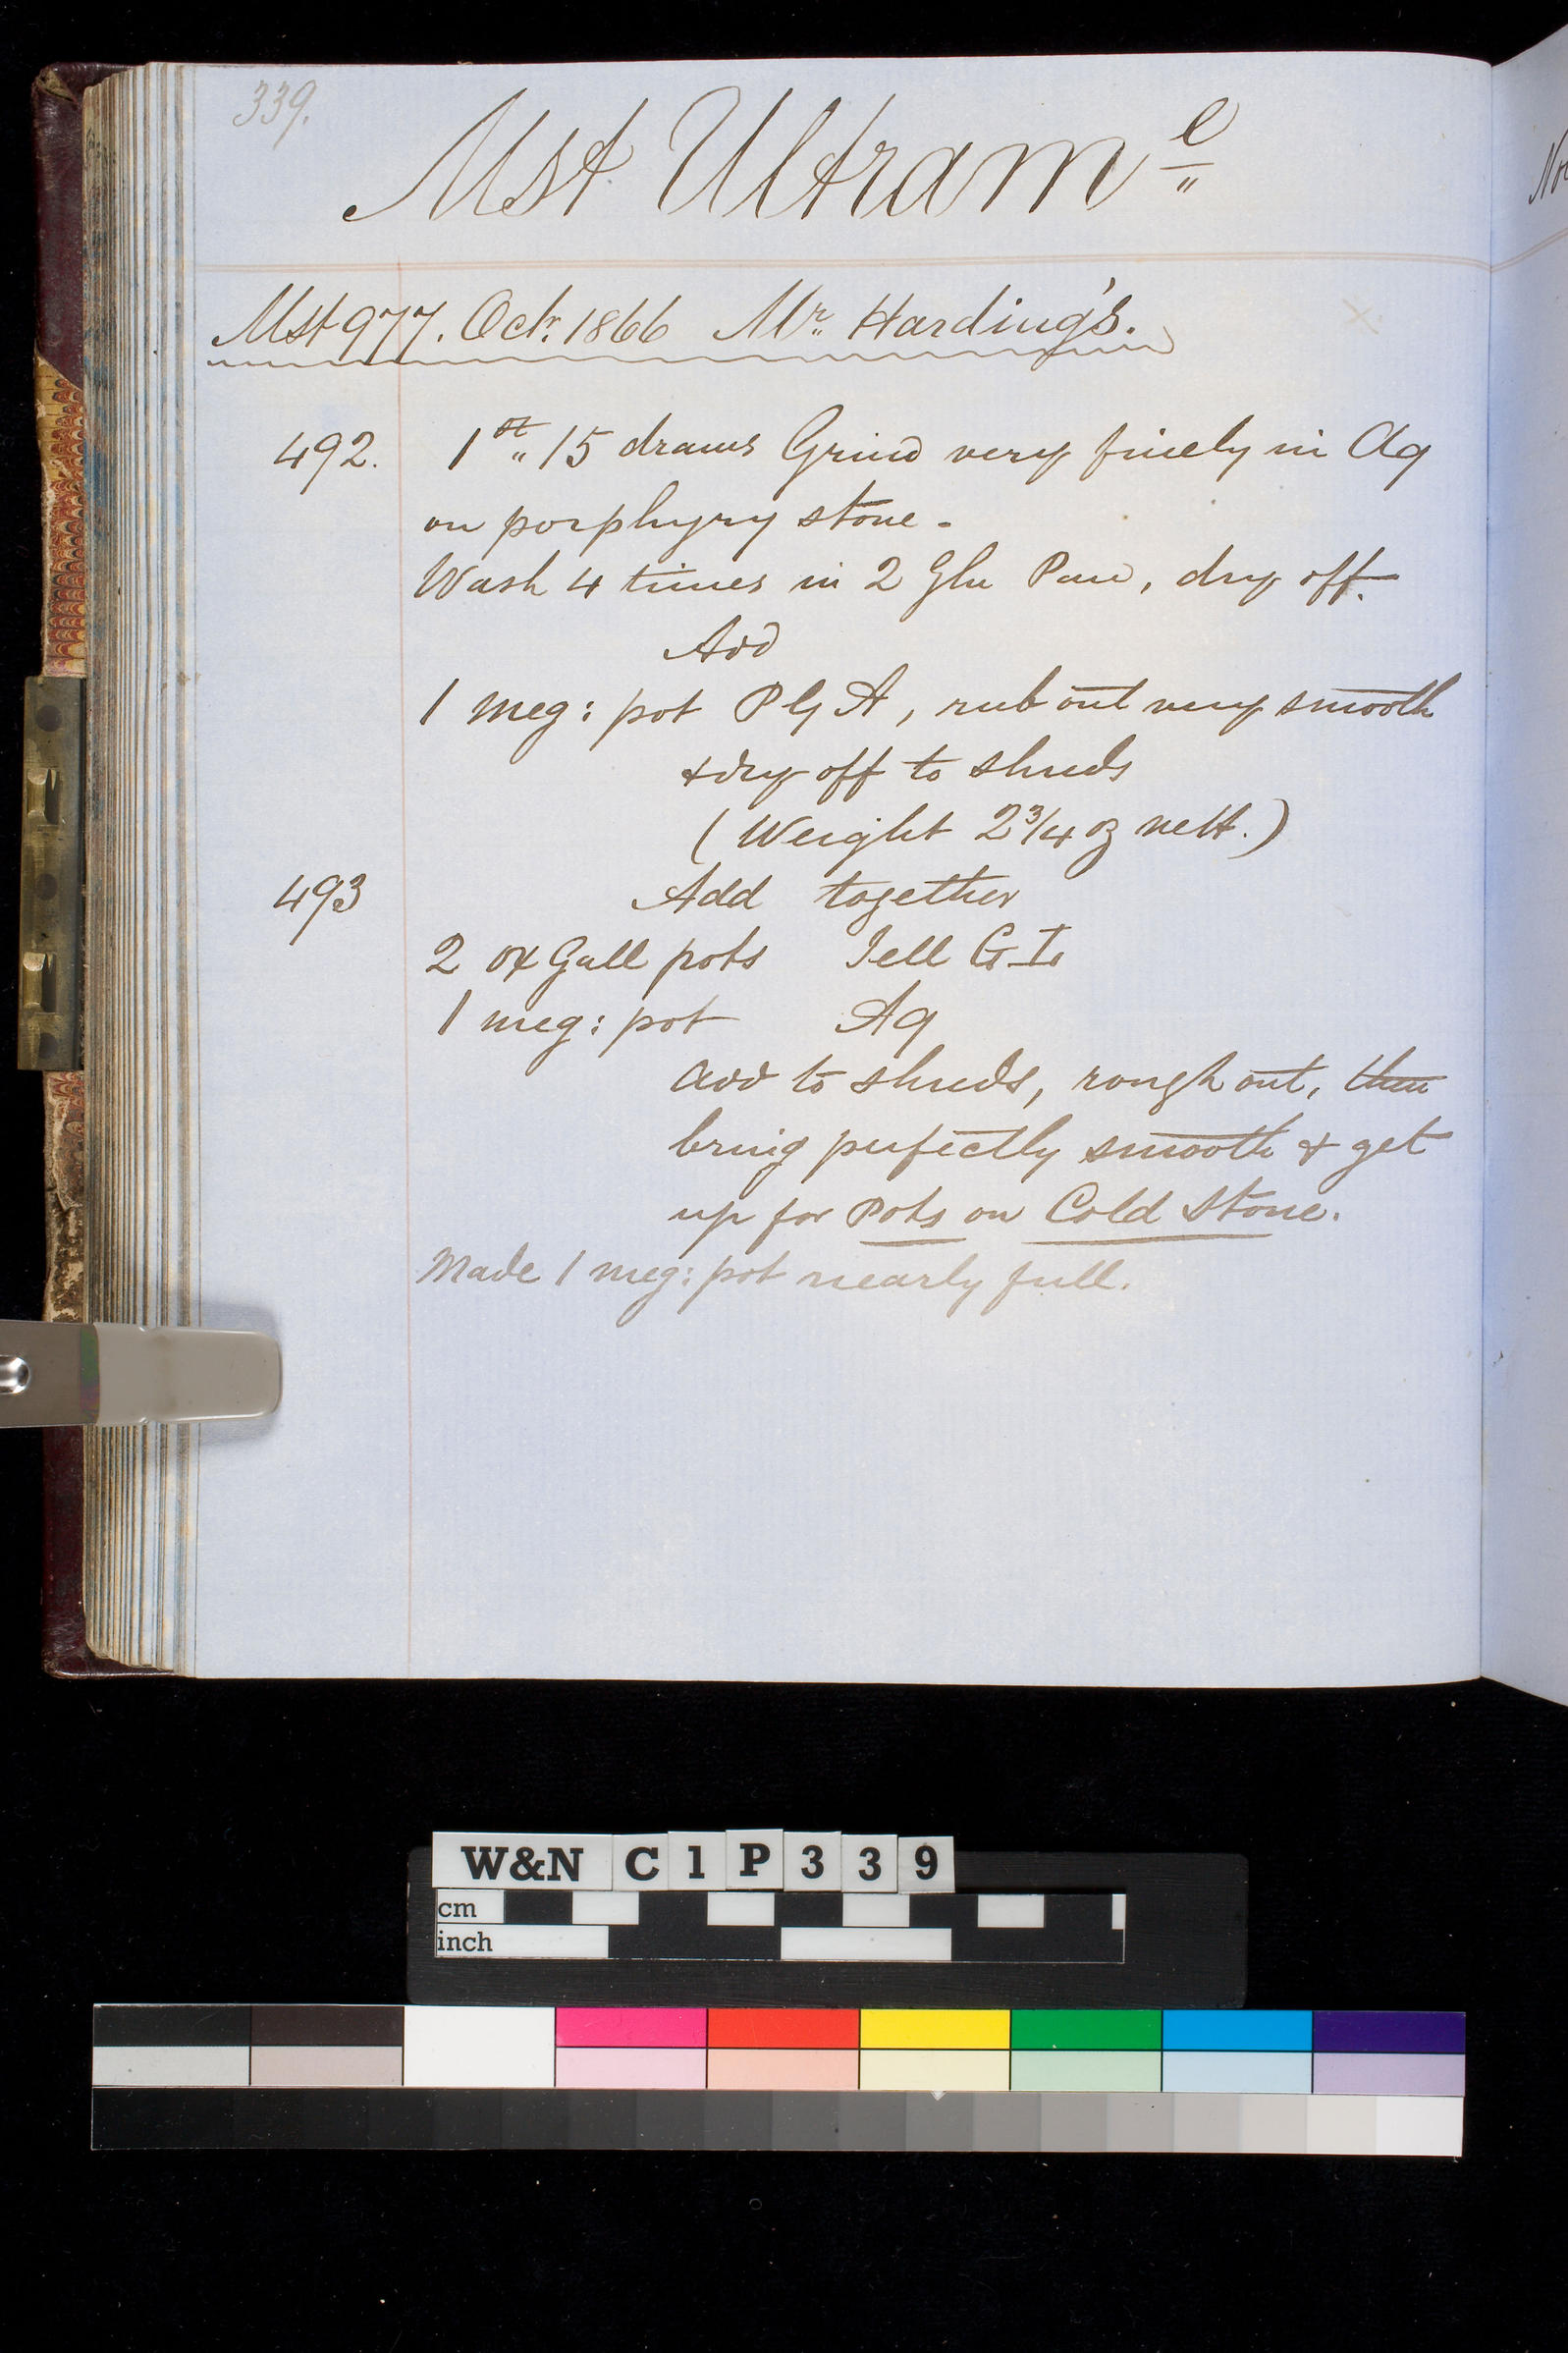 339.
Mst Ultramᵉ
Mst 977. Octr. 1866 Mr. Harding's.
492. 1st 15 drams Grind very finely in Aq
on porphyry stone.
Wash 4 times in 2 Gln Pan, dry off.
Add
1 meg: pot P G A, rub out very smooth
& dry off to shreds
(Weight 2 3/4 oz nett.)
493 Add together
2 ox Gall pots Jell G I.
1 meg: pot Aq
add to shreds, rough out, then
bring perfectly smooth & get
up for Pots on Cold Stone.
Made 1 meg: pot nearly full.
W&N C1P339
cm
inch